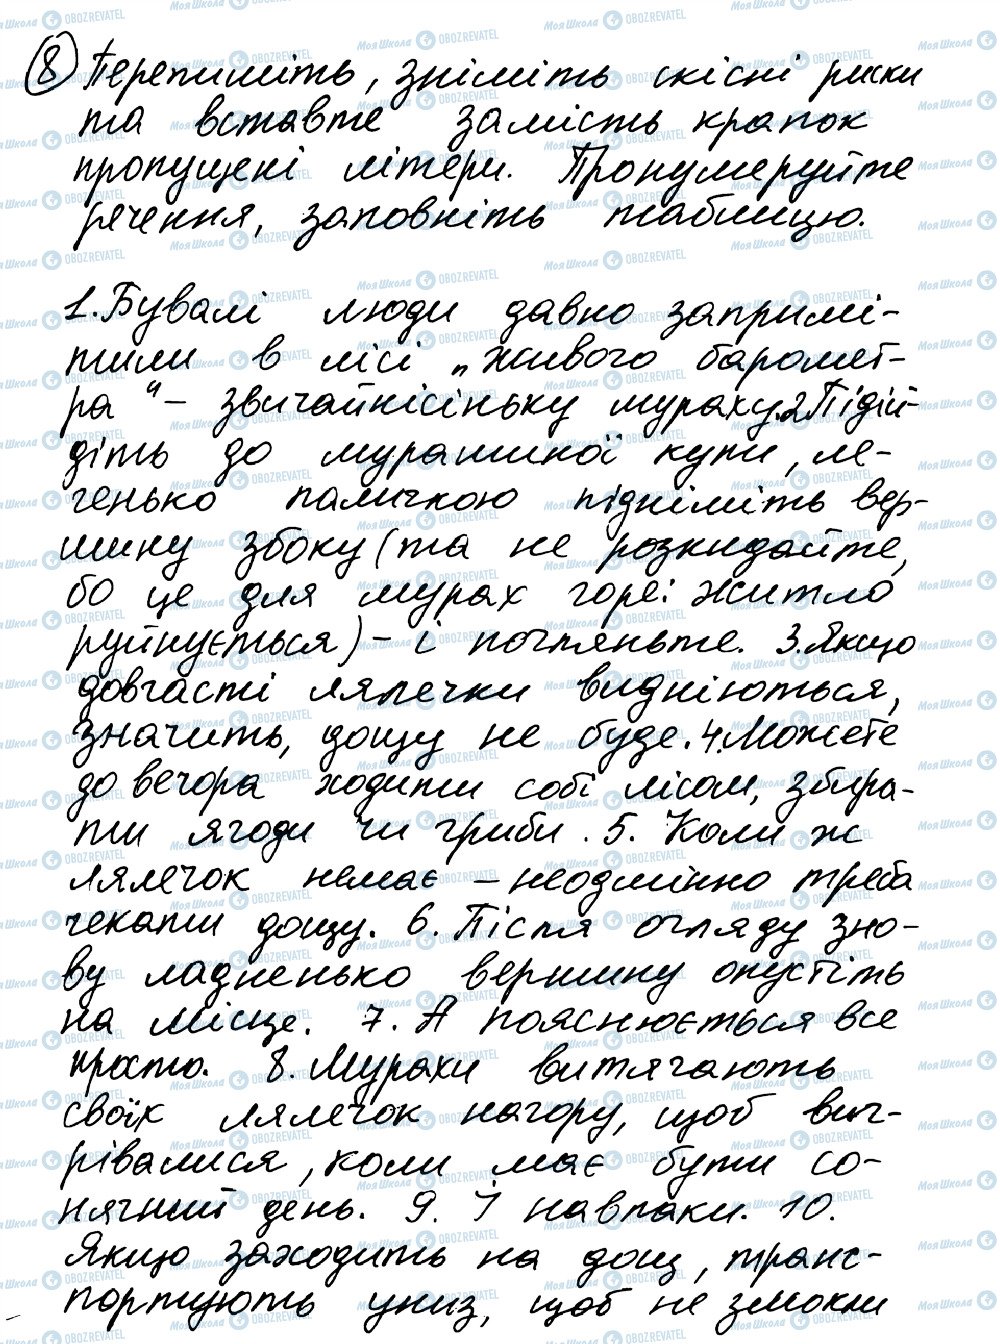 8 Перепишіть, зніміть скісні риски
та вставте замість крапок
пропущені літери. Пронумеруйте
речення, заповніть таблицю.
1. Бувалі люди давно запримі-
тили в лісі „живого баромет-
ра“ – звичайнісіньку мураху. 2. Підій-
діть до мурашиної купи, ле-
генько паличкою підніміть вер-
шину збоку (та не розкидайте,
бо це для мурах горе: житло
руйнується) – і погляньте. 3. Якщо
довгасті лялечки видніються,
значить, дощу не буде. 4. Можете
до вечора ходити собі лісом, збира-
ти ягоди чи гриби. 5. Коли ж
лялечок немає – неодмінно треба
чекати дощу. 6. Після огляду зно-
ву ладненько вершину опустіть
на місце. 7. А пояснюється все
просто. 8. Мурахи витягають
своїх лялечок нагору, щоб виг-
рівалися, коли має бути со-
нячний день. 9. І навпаки. 10.
Якщо заходить на дощ, транс-
портують униз, щоб не змокли